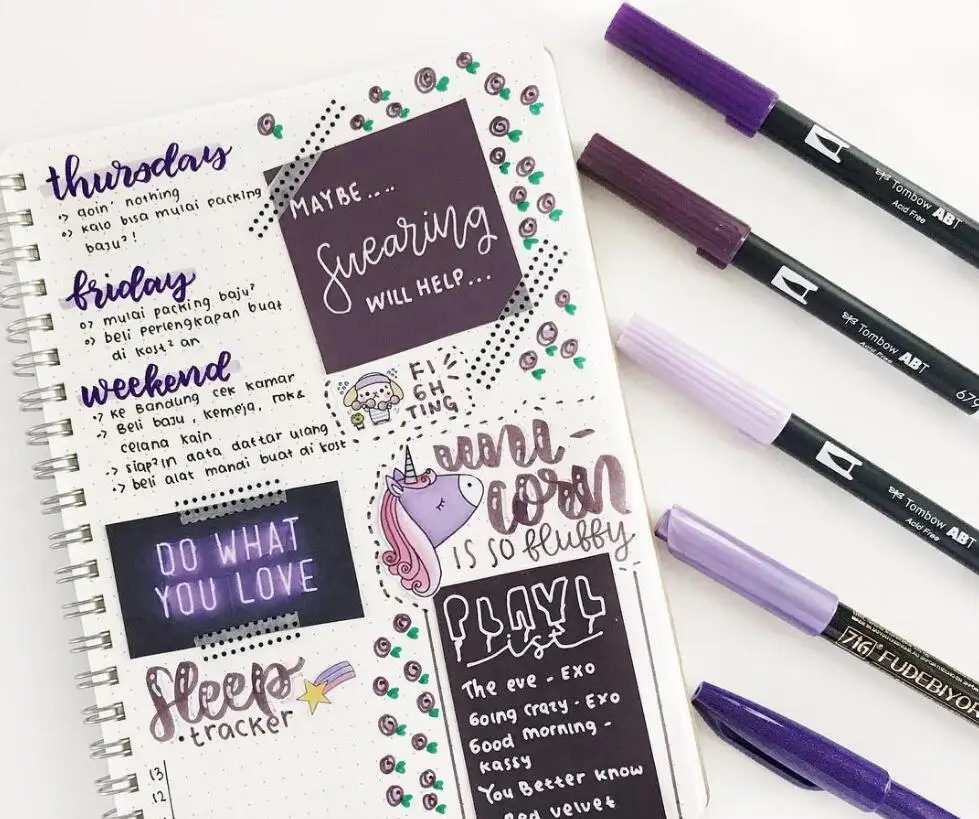 thursday
-> goin' nothing
-> kalo bisa mulai packing
baju?!
friday
-> mulai packing baju?
-> beli perlengkapan buat
di kost²an
weekend
-> ke Bandung cek kamar
-> Beli baju, kemeja, rok &
celana kain
-> siap²in data daftar ulang
-> beli alat mandi buat di kost
MAYBE....
swearing
WILL HELP...
FI
GH
TING
uni-
corn
IS SO fluffy
DO WHAT
YOU LOVE
Sleep
tracker
13
12
PLAYL
ist
The eve - EXO
Going crazy - EXO
Good morning -
kassy
You Better know
Red velvet
Tombow ABT
Acid Free
Tombow ABT
Acid Free
679
Tombow ABT
Acid Free
ZIG FUDEBIYOR